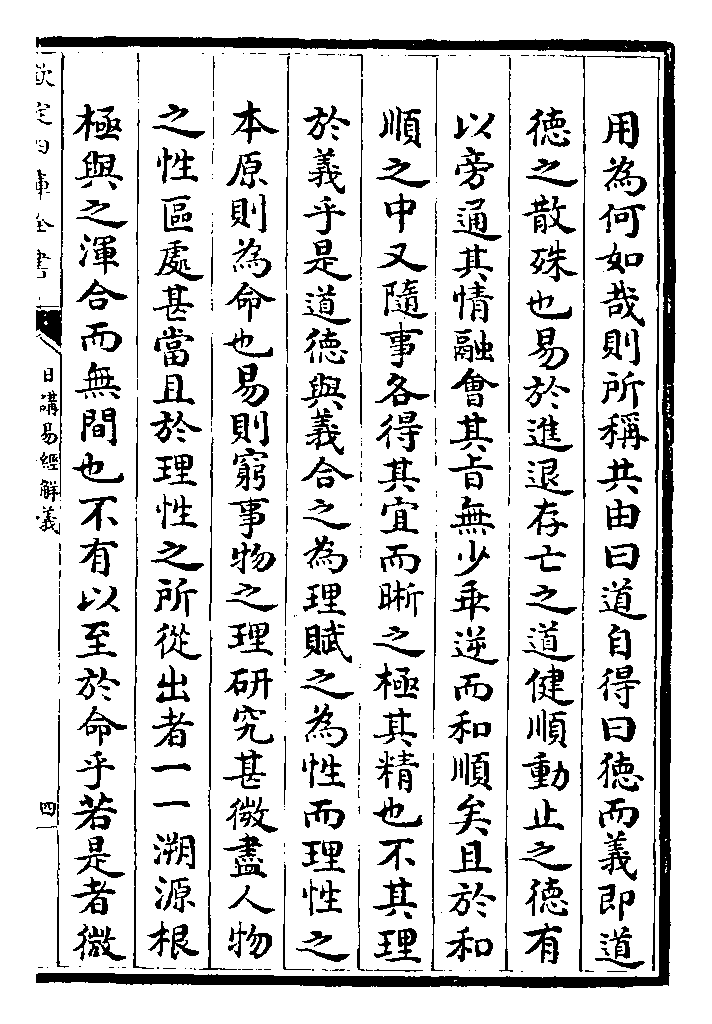 用為何如哉則所稱共由曰道自得曰徳而義即道
徳之散殊也易於進退存亡之道健順動止之徳有
以旁通其情融會其旨無少乖逆而和順矣且於和
順之中又隨事各得其宜而晰之極其精也不其理
於義乎是道徳與義合之為理賦之為性而理性之
本原則為命也易則窮事物之理研究甚微盡人物
之性區處甚當且於理性之所從出者一一溯源根
極與之渾合而無間也不有以至於命乎若是者微
欽定四庫全書
日講易經解義
四